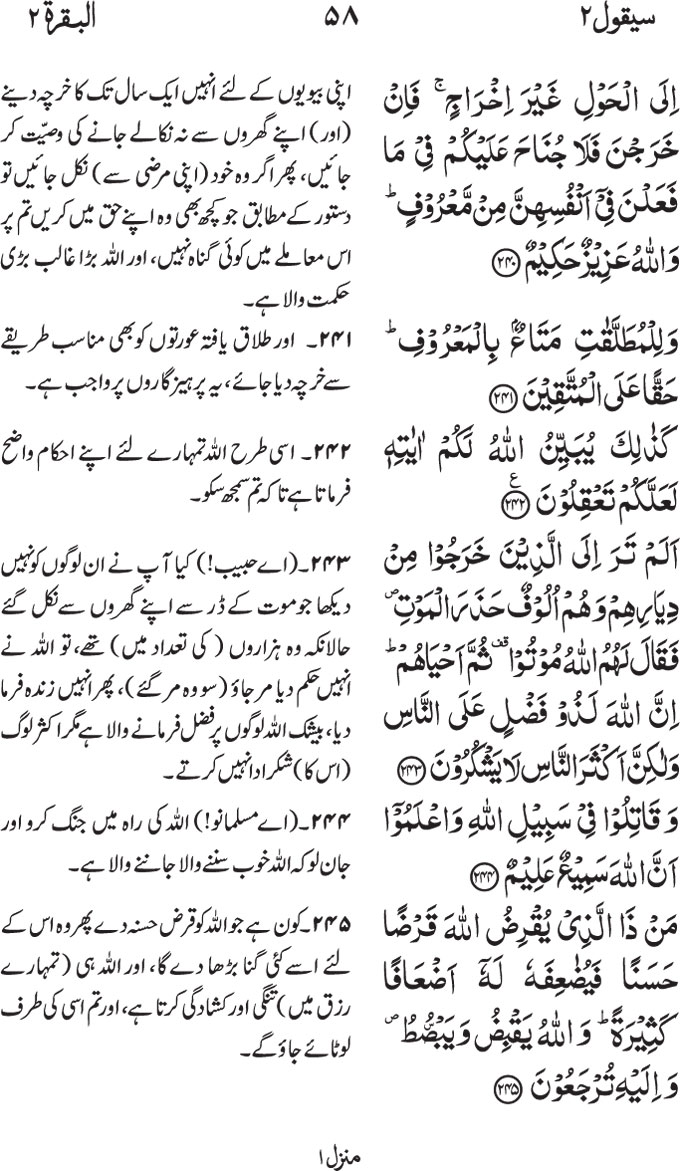 سیقول ۲
۵۸
البقرۃ ۲
اِلَی الۡحَوۡلِ غَیۡرَ اِخۡرَاجٍ ۚ فَاِنۡ
خَرَجۡنَ فَلَا جُنَاحَ عَلَیۡکُمۡ فِیۡ مَا
فَعَلۡنَ فِیۡۤ اَنۡفُسِہِنَّ مِنۡ مَّعۡرُوۡفٍ ؕ
وَاللّٰہُ عَزِیۡزٌ حَکِیۡمٌ ﴿۲۴۰﴾
وَلِلۡمُطَلَّقٰتِ مَتَاعٌۢ بِالۡمَعۡرُوۡفِ ؕ
حَقًّا عَلَی الۡمُتَّقِیۡنَ ﴿۲۴۱﴾
کَذٰلِکَ یُبَیِّنُ اللّٰہُ لَکُمۡ اٰیٰتِہٖ
لَعَلَّکُمۡ تَعۡقِلُوۡنَ ﴿۲۴۲﴾ ع
اَلَمۡ تَرَ اِلَی الَّذِیۡنَ خَرَجُوۡا مِنۡ
دِیَارِہِمۡ وَہُمۡ اُلُوۡفٌ حَذَرَ الۡمَوۡتِ ۪
فَقَالَ لَہُمُ اللّٰہُ مُوۡتُوۡا ۟ ثُمَّ اَحۡیَاہُمۡ ؕ
اِنَّ اللّٰہَ لَذُوۡ فَضۡلٍ عَلَی النَّاسِ
وَلٰکِنَّ اَکۡثَرَ النَّاسِ لَا یَشۡکُرُوۡنَ ﴿۲۴۳﴾
وَ قَاتِلُوۡا فِیۡ سَبِیۡلِ اللّٰہِ وَاعۡلَمُوۡۤا
اَنَّ اللّٰہَ سَمِیۡعٌ عَلِیۡمٌ ﴿۲۴۴﴾
مَنۡ ذَا الَّذِیۡ یُقۡرِضُ اللّٰہَ قَرۡضًا
حَسَنًا فَیُضٰعِفَہٗ لَہٗۤ اَضۡعَافًا
کَثِیۡرَۃً ؕ وَ اللّٰہُ یَقۡبِضُ وَیَبۡصُۜطُ ۪
وَ اِلَیۡہِ تُرۡجَعُوۡنَ ﴿۲۴۵﴾
اپنی بیویوں کے لئے انہیں ایک سال تک کا خرچہ دینے
(اور) اپنے گھروں سے نہ نکالے جانے کی وصیّت کر
جائیں، پھر اگر وہ خود (اپنی مرضی سے) نکل جائیں تو
دستور کے مطابق جو کچھ بھی وہ اپنے حق میں کریں تم پر
اس معاملے میں کوئی گناہ نہیں، اور اللہ بڑا غالب بڑی
حکمت والا ہے۔
۲۴۱۔ اور طلاق یافتہ عورتوں کو بھی مناسب طریقے
سے خرچہ دیا جائے، یہ پرہیزگاروں پر واجب ہے۔
۲۴۲۔ اسی طرح اللہ تمہارے لئے اپنے احکام واضح
فرماتا ہے تاکہ تم سمجھ سکو۔
۲۴۳۔(اے حبیب!) کیا آپ نے ان لوگوں کو نہیں
دیکھا جو موت کے ڈر سے اپنے گھروں سے نکل گئے
حالانکہ وہ ہزاروں (کی تعداد میں) تھے، تو اللہ نے
انہیں حکم دیا مر جاؤ (سو وہ مر گئے)، پھر انہیں زندہ فرما
دیا، بیشک اللہ لوگوں پر فضل فرمانے والا ہے مگر اکثر لوگ
(اس کا) شکر ادا نہیں کرتے۔
۲۴۴۔(اے مسلمانو!) اللہ کی راہ میں جنگ کرو اور
جان لو کہ اللہ خوب سننے والا جاننے والا ہے۔
۲۴۵۔کون ہے جو اللہ کو قرض حسنہ دے پھر وہ اس کے
لئے اسے کئی گنا بڑھا دے گا، اور اللہ ہی (تمہارے
رزق میں) تنگی اور کشادگی کرتا ہے، اور تم اسی کی طرف
لوٹائے جاؤ گے۔
منزل ۱